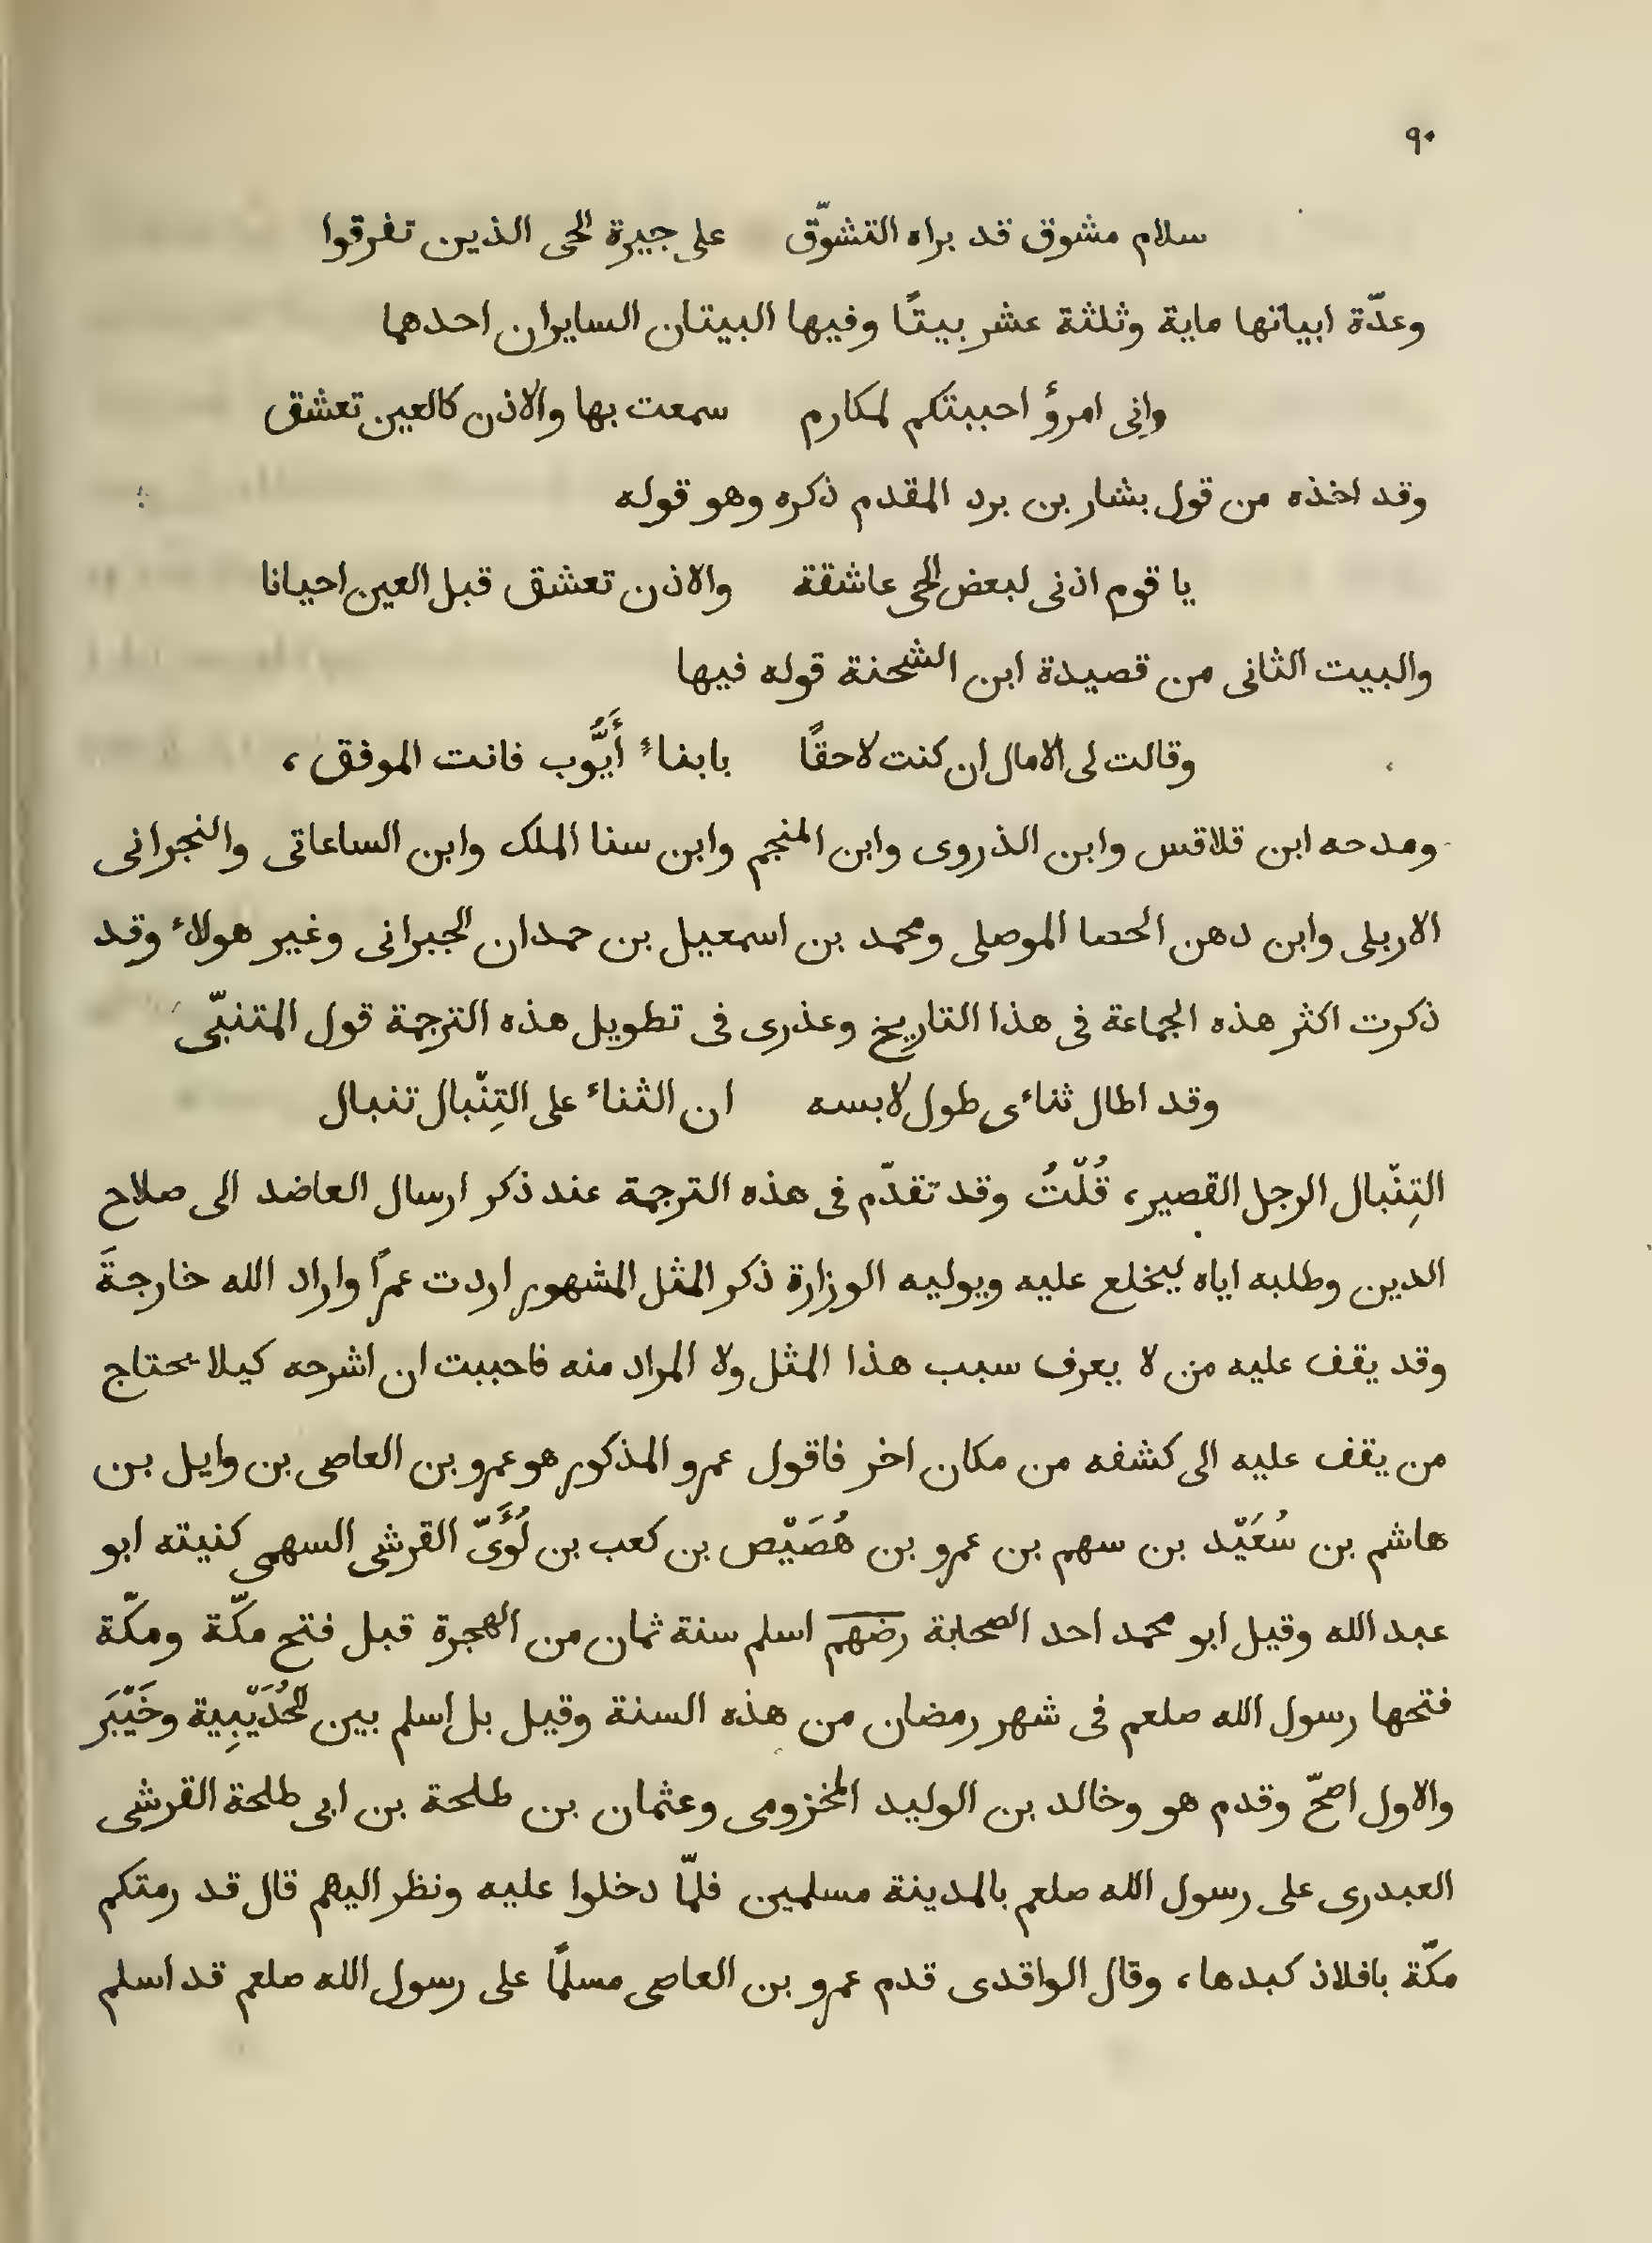 ٩٠
سلام مشوق قد براه التشوّق على جيرة الحى الذين تفرقوا
وعدّة ابياتها ماية وثلثة عشر بيتًا وفيها البيتان السايران احدهما
وانى امرؤ احببتكم لمكارم سمعت بها والاذن كالعين تعشق
وقد اخذه من قول بشار بن برد المقدم ذكره وهو قوله
يا قوم اذنى لبعض الحى عاشقة والاذن تعشق قبل العين احيانا
والبيت الثانى من قصيدة ابن الشحنة قوله فيها
وقالت لى الامال ان كنت لاحقًا بابناء أَيُّوب فانت الموفق ،
ومدحه ابن قلاقس وابن الذروى وابن المنجم وابن سنا الملك وابن الساعاتى والنجرانى
الاربلى وابن دهن الحصا الموصلى ومحمد بن اسمعيل بن حمدان الجبرانى وغير هولاء وقد
ذكرت اكثر هذه الجماعة فى هذا التاريخ وعذرى فى تطويل هذه الترجمة قول المتنبّى
وقد اطال ثناءى طول لابسه ان الثناء على التِنْبال تنبال
التِنْبال الرجل القصير، قُلْتُ وقد تقدّم فى هذه الترجمة عند ذكر ارسال العاضد الى صلاح
الدين وطلبه اياه ليخلع عليه ويوليه الوزارة ذكر المثل المشهور اردت عمرًا واراد الله خارجةَ
وقد يقف عليه من لا يعرف سبب هذا المثل ولا المراد منه فاحببت ان اشرحه كيلا يحتاج
من يقف عليه الى كشفه من مكان اخر فاقول عمرو المذكور هو عمرو بن العاصى بن وايل بن
هاشم بن سُعَيْد بن سهم بن عمرو بن هُصَيْص بن كعب بن لُوَّىّ القرشى السهمى كنيته ابو
عبد الله وقيل ابو محمد احد الصحابة رضهم اسلم سنة ثمان من الهجرة قبل فتح مكّة ومكّة
فتحها رسول الله صلعم فى شهر رمضان من هذه السنة وقيل بل اسلم بين الحُدَيْبِية وخَيْبَر
والاول اصحّ وقدم هو وخالد بن الوليد المخزومى وعثمان بن طلحة بن ابى طلحة القرشى
العبدرى على رسول الله صلعم بالمدينة مسلمين فلمّا دخلوا عليه ونظر اليهم قال قد رمتكم
مكّة بافلاذ كبدها، وقال الواقدى قدم عمرو بن العاصى مسلمًا على رسول الله صلعم قد اسلم